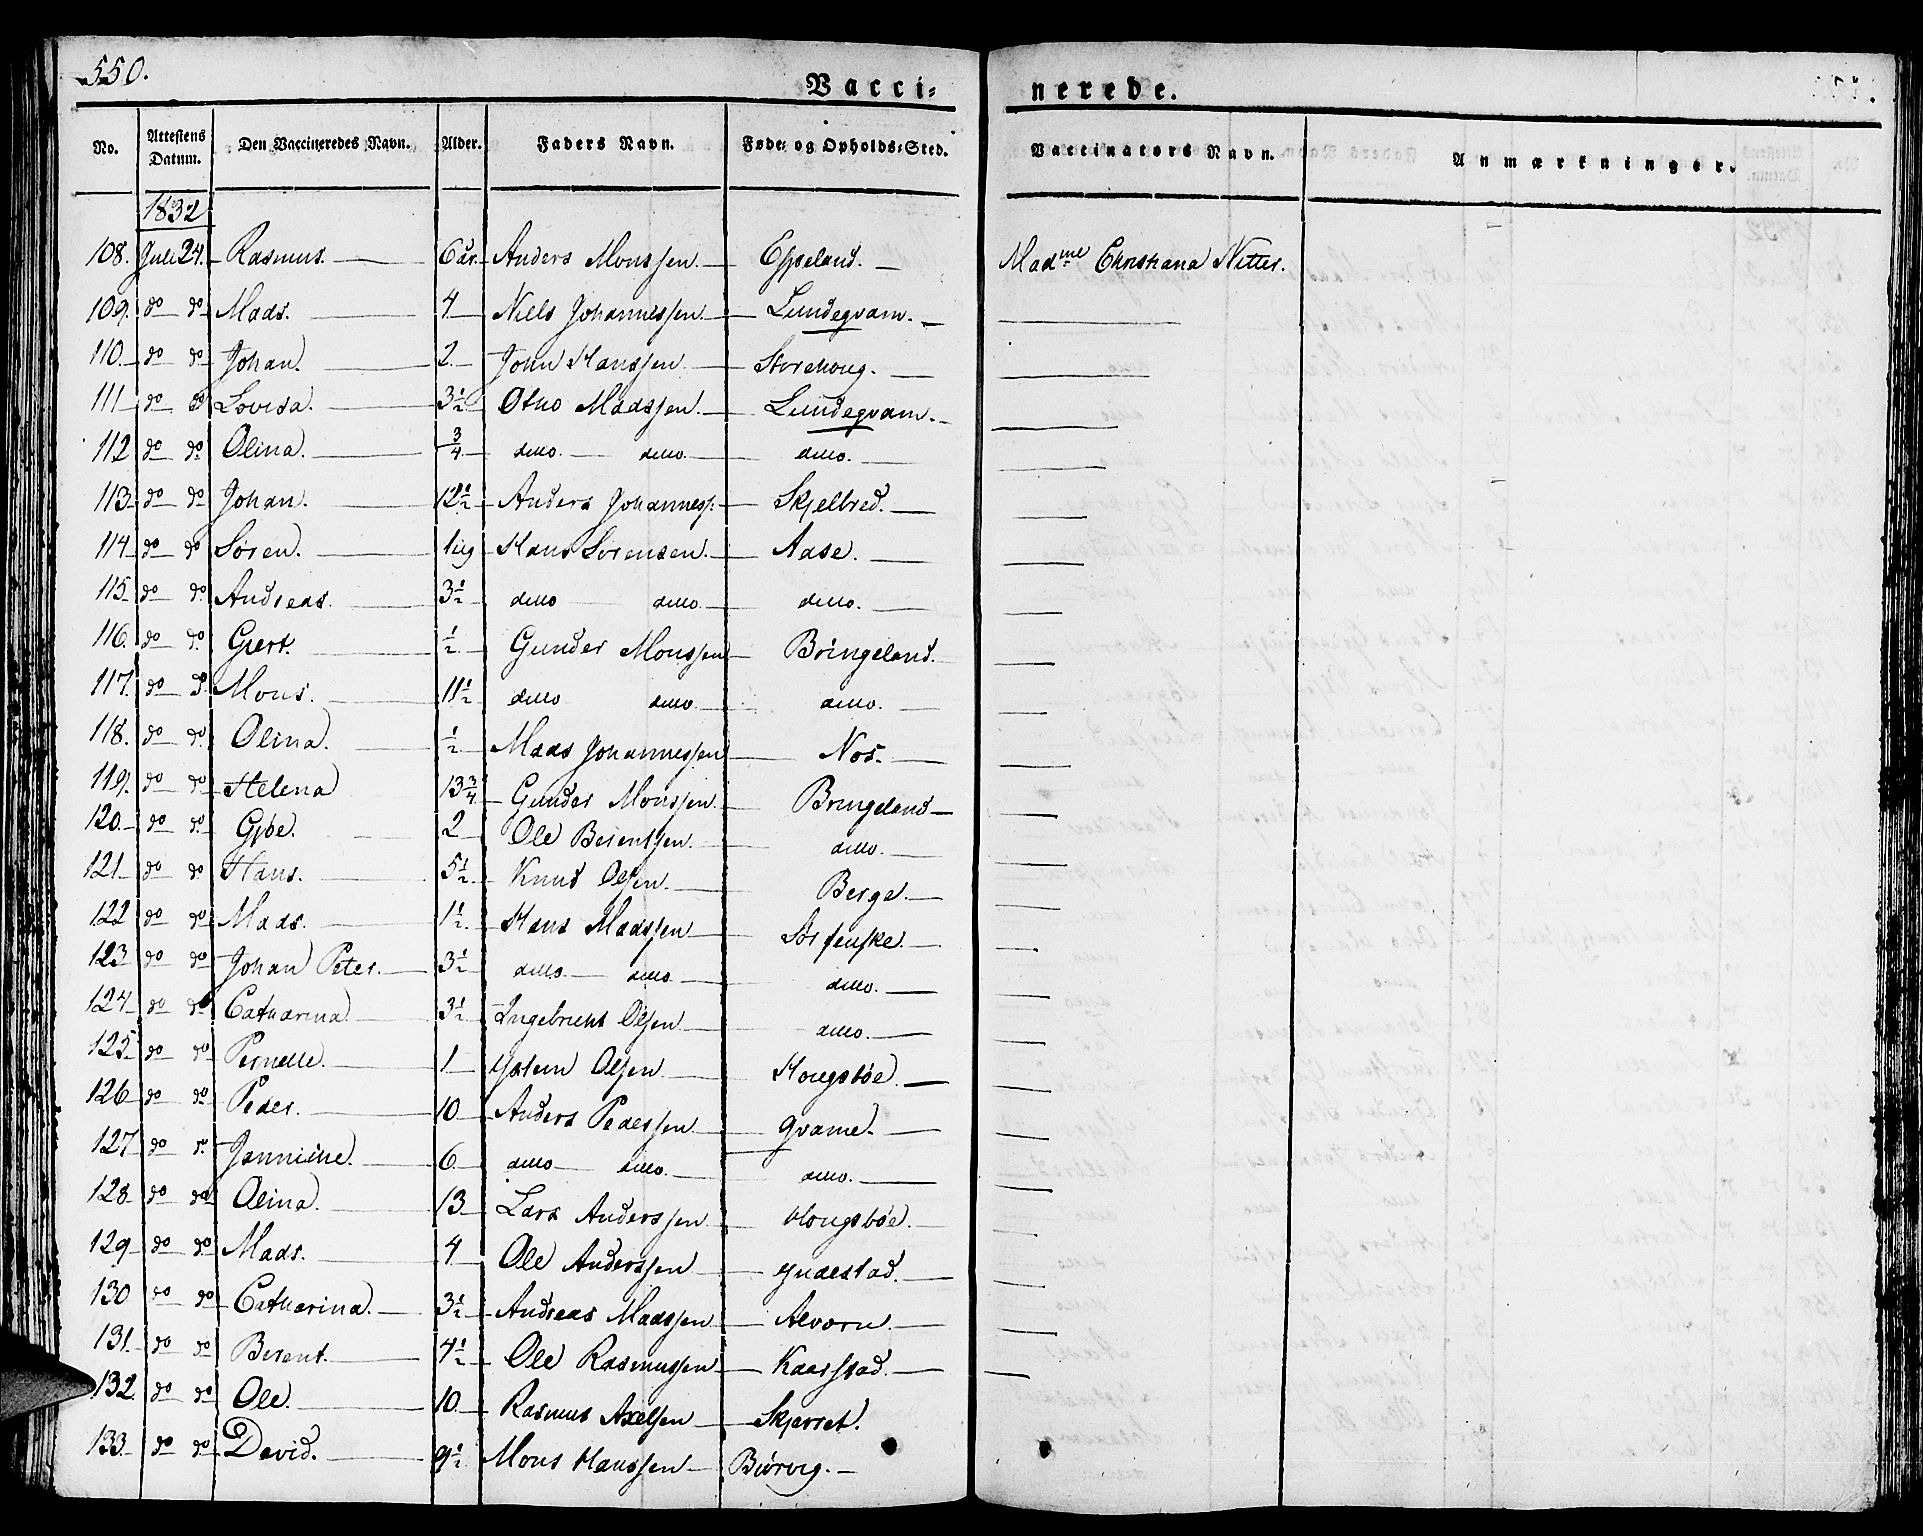 550.
Vacci= nerede.
No. Attestens Datum. Den Vaccineredes Navn. Alder. Faders Navn. Føde- og Opholds-Sted. Vaccinators Navn. Anmærkninger.
1832
108. Juli 24. Rasmus. 6 år. Anders Monssen. Espeland. Mad<sup>me</sup> Christiana Nitter.
109. do do Mads. 4 Niels Johannessen. Lundeqvam.
110. do do Johan. 2. John Hanssen Storehoug.
111 do do Lovisa. 3½ Otho Madssen. Lundeqvam.
112 do do Olina. ¾ ditto. ditto. ditto.
113 do do Johan. 12½ Anders Johanness. Skjelbred.
114 do do Søren. Hans Sørensen. Aase.
115. do do Andreas. 3½ ditto ditto ditto.
116. do do Giert. ½ Gunder Monssen Bringeland.
117. do do Mons. 11½ ditto ditto. ditto.
118. do do Olina. ½ Mads Johannessen Nos.
119. do do Helena 13¾ Gunder Monssen. Bringeland
120. do do Gjøe. 2 Ole Berentsen. ditto.
121. do do Hans. 5½ Knud Olsen. Berge.
122 do do Mads. 1½ Hans Madssen
123 do do Johan Peter. 3½ ditto. ditto. ditto.
124 do do Catharina 3½ Ingebricht Olsen ditto.
125 do do Pernelle. 1 Olsen Hougsbøe.
126 do do Peder. 10 Anders Pederssen qvame.
127 do do 6 ditto ditto. ditto.
128 do do Olina. 13 Lars Anderssen Hougsbøe.
129 do do Mads. 4 Ole Anderssen Yndestad.
130 do do Catharina. 3½ Andreas Madssen Alvorn.
131. do do Berent. 4½ Ole Rasmussen Kaarstad.
132 do do Ole. 10 Rasmus Axelsen Skjerret.
133 do do David. 9½ Mons Hanssen Biørvig.